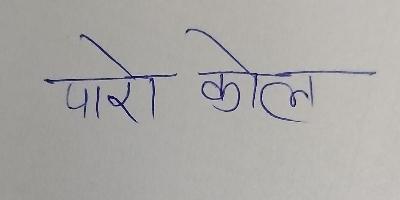 पारो कोल